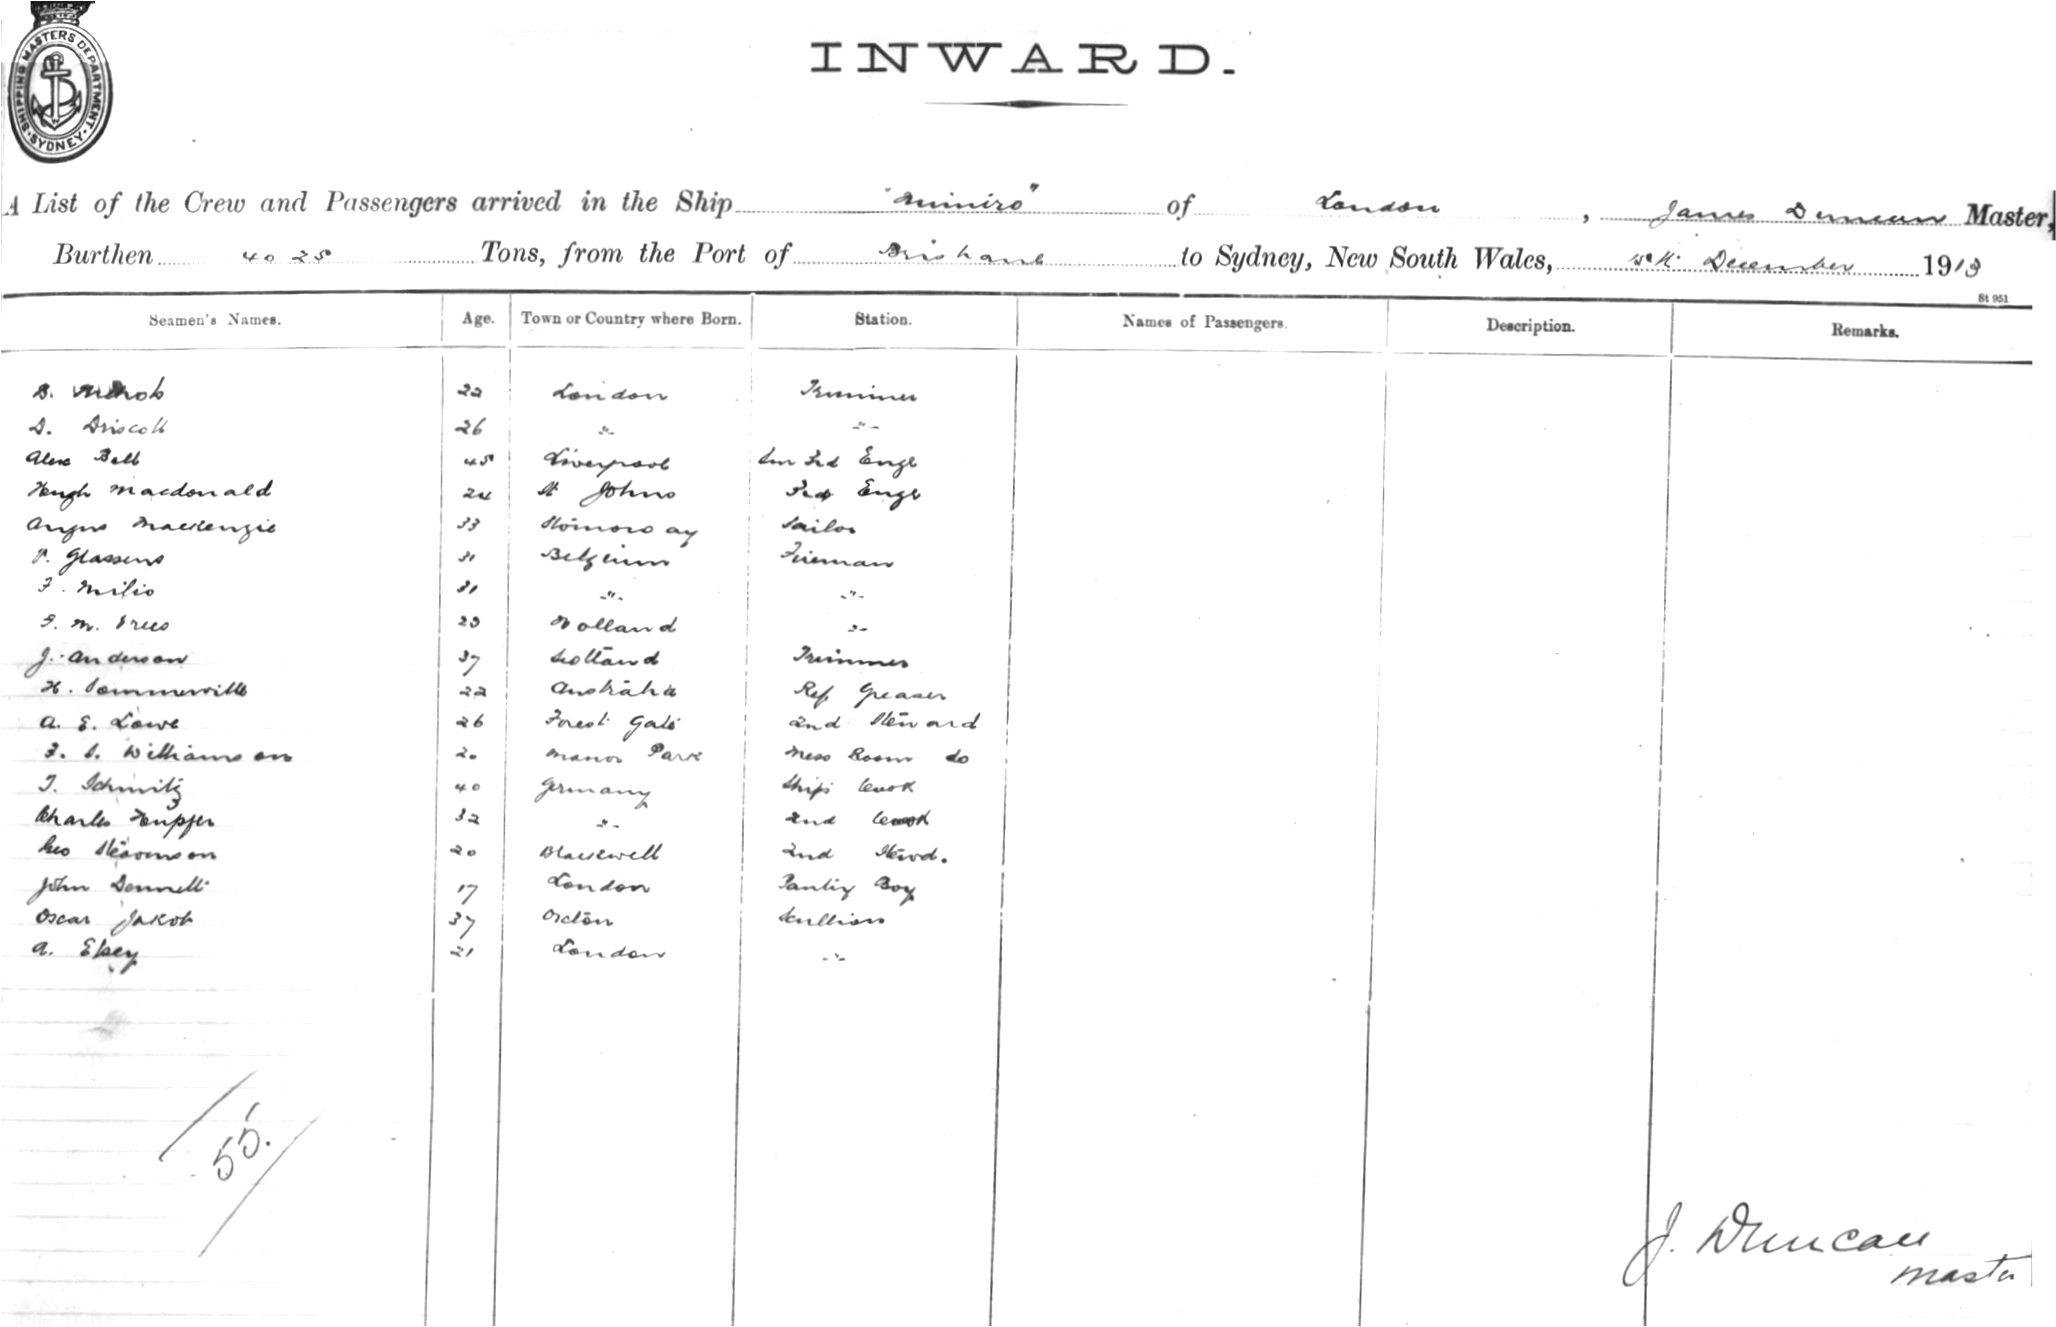 SHIPPING MASTERS DEPARTMENT
SYDNEY
INWARD.
A List of the Crew and Passengers arrived in the Ship "Mimiro" of London, James Duncan Master,
Burthen 4025 Tons, from the Port of Brisbane to Sydney, New South Wales, December 1913
St 951
Seamen's Names. Age. Town or Country where Born. Station. Names of Passengers. Description. Remarks.
B. 22 London Trimmer
D. Driscoll 26 -"- -"-
Alex Bell 45 Liverpool 3rd Engr
Hugh Macdonald 24 St Johns Engr
Angus Mackenzie 33 Stornoway Sailor
P. Glassens 31 Belgium Fireman
F. Milio 31 -"- -"-
M. Holland -"-
J. Anderson 37 Scotland Trimmer
H. Sommerville 22 Australia Ref Greaser
A. E. Lowe 26 Forest Gate 2nd Steward
F. S. Williamson 20 Manor Park Mess Room do
T. Schmitz 40 Germany Ships Cook
Charles Hupfer 32 -"- 2nd Cook
Geo Stevenson 20 Blackwell 2nd Stewd.
John Donnell 17 London Pantry Boy
Oscar Jakob 37 Scullion
A. Elsey 21 London -"-
55.
J. Duncan
Master